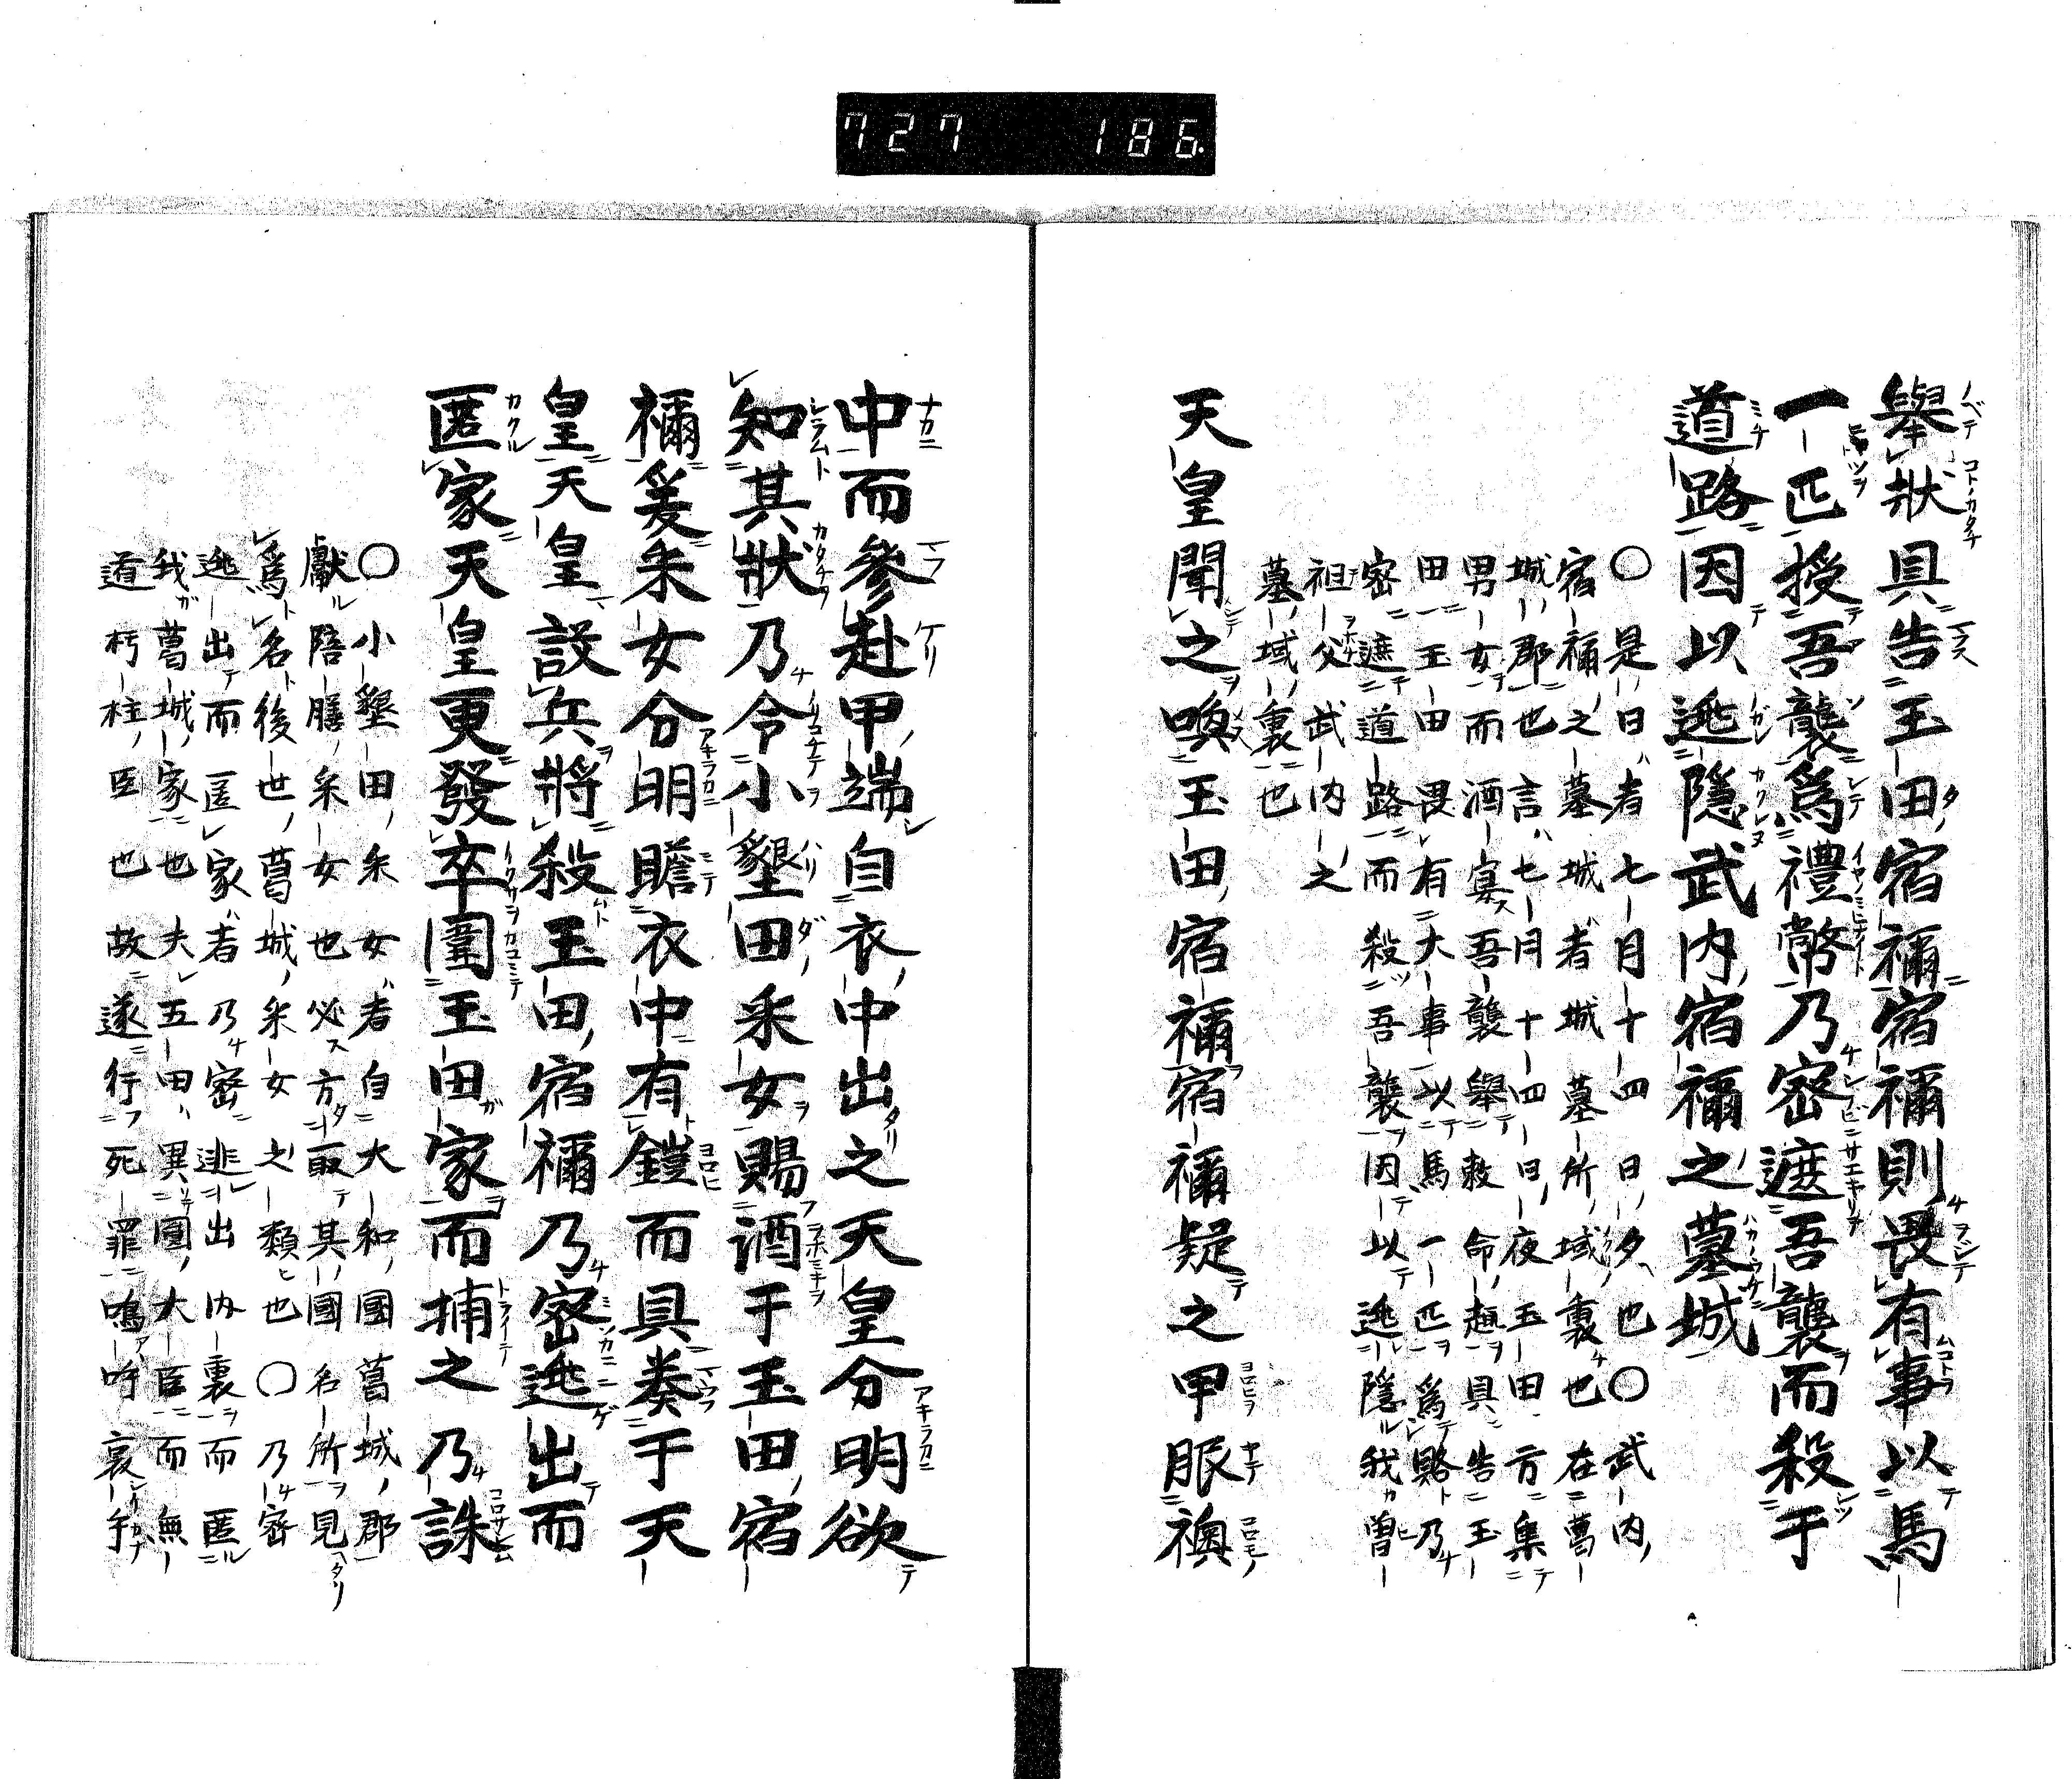 727 186.
舉狀具告玉田宿禰宿禰則畏有事以馬
一匹授吾襲爲禮幣乃密遮吾襲而殺于
道路因以逃隱武内宿禰之墓城
○是日者七月十四日夕也○武内
宿禰之墓城者城墓所域裏也在葛
城郡也言七月十四日夜玉田方集
男女而酒宴吾襲舉敕命趣具告玉
田玉田畏有大事以馬一匹爲賂乃
密遮道路而殺吾襲因以逃隱我曽
祖父武内之
墓域裏也
天皇聞之喚玉田宿禰宿禰疑之甲服襖
中而參赴甲端自衣中出之天皇分明欲
知其狀乃令小墾田釆女賜酒于玉田宿
禰爰釆女分明瞻衣中有鎧而具奏于天
皇天皇設兵將殺玉田宿禰乃密逃出而
匿家天皇更發卒圍玉田家而捕之乃誅
○小墾田釆女者自大和國葛城郡
獻陪膳釆女也必方取其國名所見
爲名後世葛城釆女之類也○乃密
逃出而匿家者乃密逃出内裏而匿
我葛城家也夫五田異圓大臣而無
道朽柱臣也故遂行死罪嗚呼哀乎